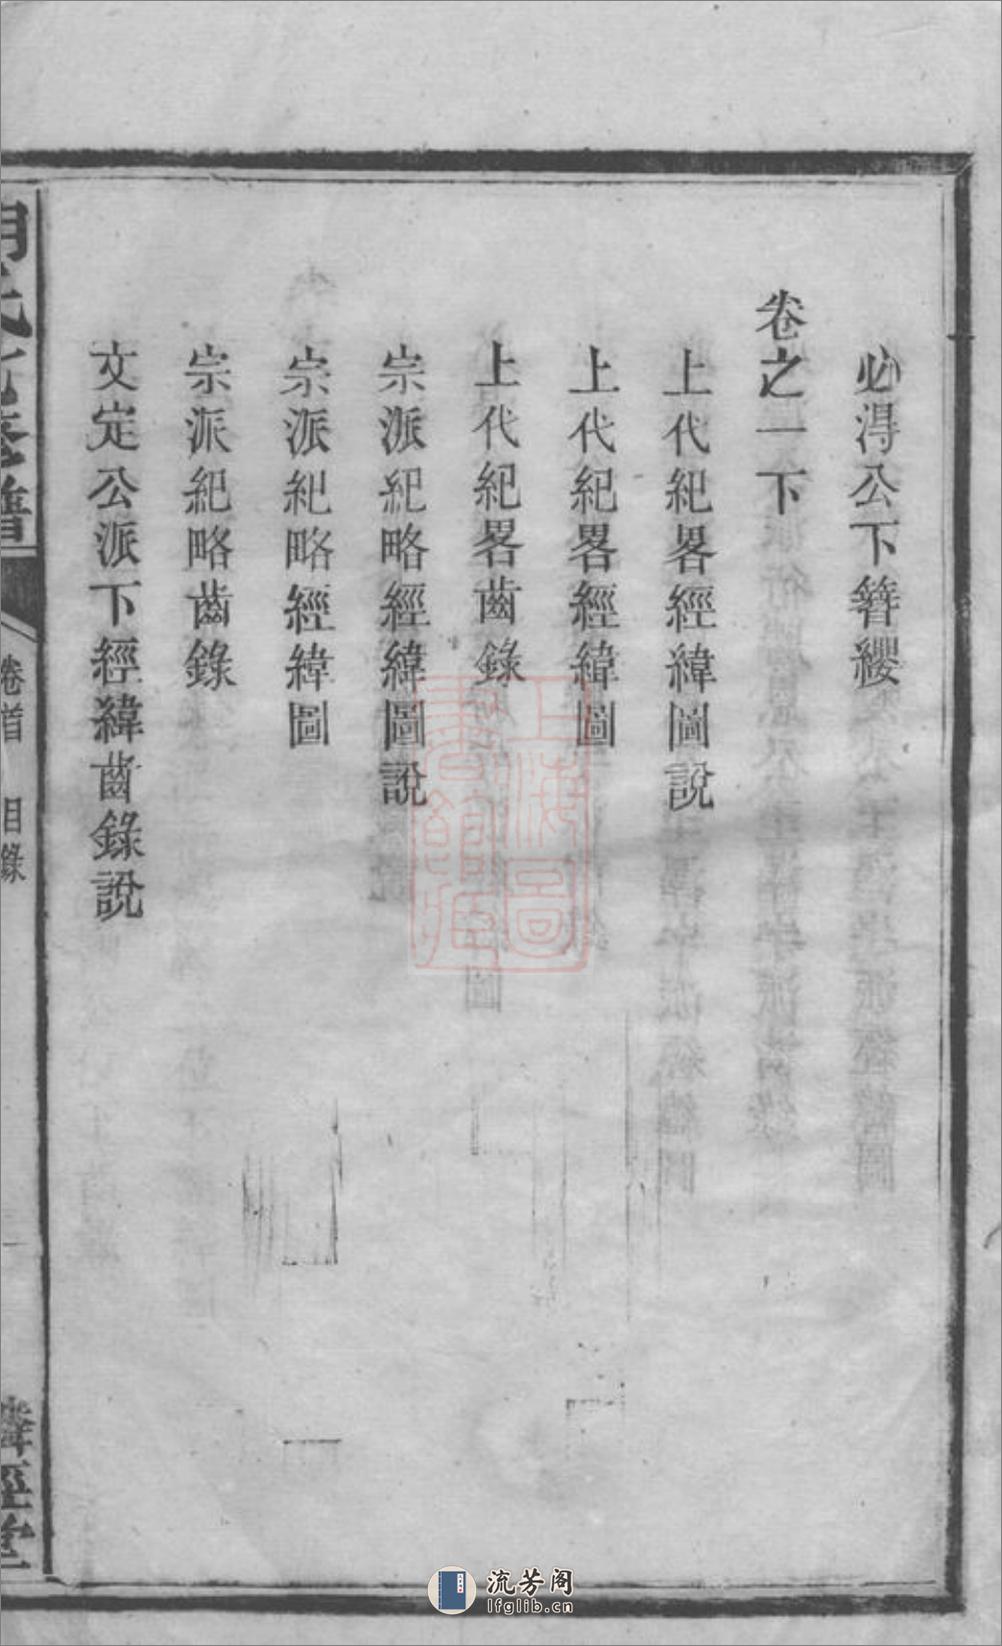 必淂公下簪纓
卷之一下
上代紀畧經緯圖說
上代紀畧經緯圖
上代紀畧齒錄
宗派紀略經緯圖說
宗派紀略經緯圖
宗派紀略齒錄
文定公派下經緯齒錄說
卷首 目錄 一
經堂
上海圖書館藏
流芳阁
lfglib.cn